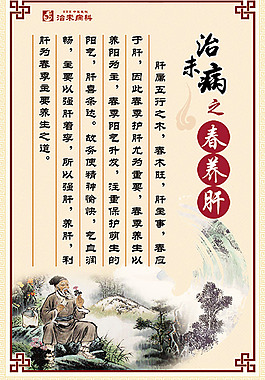 治未病科
治未病之春养肝
肝属五行之木，春木旺，肝主事，春应
于肝，因此春季护肝尤为重要，春季养生以
养阳为主，春季阳气升发，注重保护萌生的
阳气，肝喜条达。故务使精神愉快，气血润
畅，主要以强肝着手，所以强肝，养肝，利
肝为春季主要养生之道。